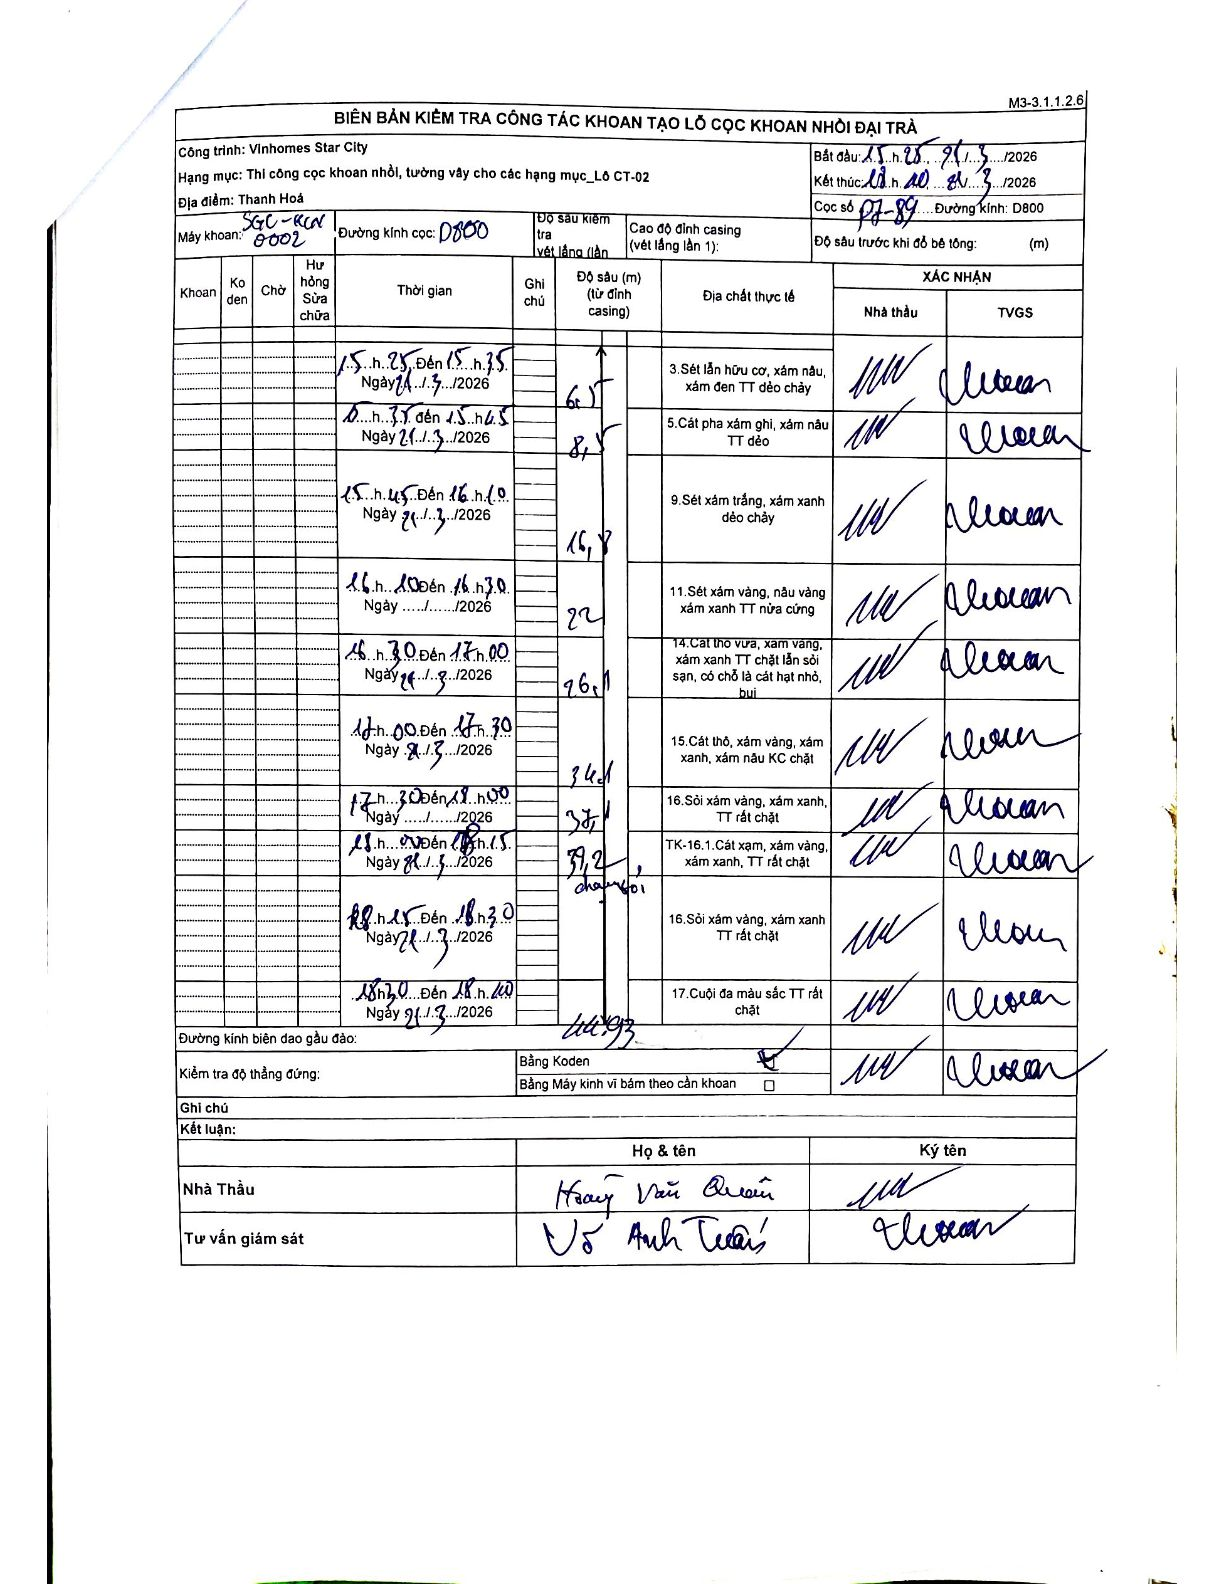 M3-3.1.1.2.6
BIÊN BẢN KIỂM TRA CÔNG TÁC KHOAN TẠO LỖ CỌC KHOAN NHỒI ĐẠI TRÀ
Công trình: Vinhomes Star City
Hạng mục: Thi công cọc khoan nhồi, tường vây cho các hạng mục_Lô CT-02
Địa điểm: Thanh Hoá
Bắt đầu: 15 h 25, 21/3/2026
Kết thúc: 18 h 40, 21/3/2026
Cọc số P7-89 Đường kính: D800
Máy khoan: SGC-KCN 0002
Đường kính cọc: D800
Độ sâu kiểm
tra
vét lắng (lần
Cao độ đỉnh casing
(vét lắng lần 1):
Độ sâu trước khi đổ bê tông: (m)
Khoan
Ko
đen
Chờ
Hư
hỏng
Sửa
chữa
Thời gian
Ghi
chú
Độ sâu (m)
(từ đỉnh
casing)
Địa chất thực tế
XÁC NHẬN
Nhà thầu
TVGS
15 h 25 Đến 15 h 35
Ngày 21/3/2026
6,5
3.Sét lẫn hữu cơ, xám nâu,
xám đen TT dẻo chảy
h 35 đến 15 h 45
Ngày 21/3/2026
8,5
5.Cát pha xám ghi, xám nâu
TT dẻo
15 h 45 Đến 16 h 10
Ngày 21/3/2026
16,8
9.Sét xám trắng, xám xanh
dẻo chảy
16 h 10 Đến 16 h 30
Ngày ...../....../2026
22
11.Sét xám vàng, nâu vàng
xám xanh TT nửa cứng
16 h 30 Đến 17 h 00
Ngày 21/3/2026
26,1
14.Cát thô vừa, xám vàng,
xám xanh TT chặt lẫn sỏi
sạn, có chỗ là cát hạt nhỏ,
bụi
17 h 00 Đến 17 h 30
Ngày 21/3/2026
34,1
15.Cát thô, xám vàng, xám
xanh, xám nâu KC chặt
17 h 30 Đến 18 h 00
Ngày ...../....../2026
37,1
16.Sỏi xám vàng, xám xanh,
TT rất chặt
18 h 00 Đến 18 h 15
Ngày 21/3/2026
39,2
chạm sỏi
TK-16.1.Cát xạm, xám vàng,
xám xanh, TT rất chặt
18 h 15 Đến 18 h 30
Ngày 21/3/2026
16.Sỏi xám vàng, xám xanh
TT rất chặt
18h30 Đến 18 h 40
Ngày 21/3/2026
44.93
17.Cuội đa màu sắc TT rất
chặt
Đường kính biên dao gầu đào:
Kiểm tra độ thẳng đứng:
Bằng Koden
Bằng Máy kinh vĩ bám theo cần khoan
Ghi chú
Kết luận:
Họ & tên
Ký tên
Nhà Thầu
Hoàng Văn
Tư vấn giám sát
Võ Anh Tuấn